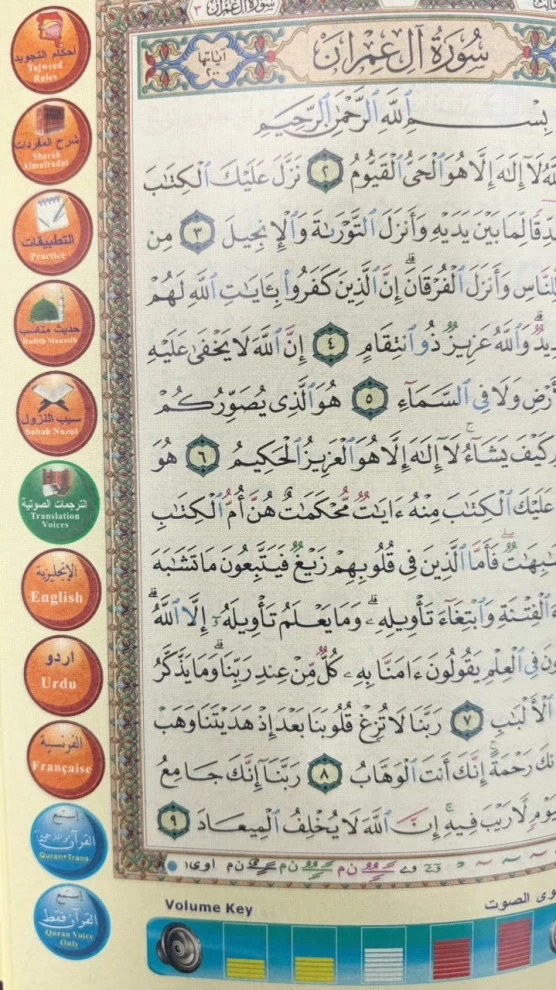 سورة آل عمران ٣
سُورَةُ آلِ عِمْرَان
آياتها ٢٠٠
بِسْمِ ٱللَّهِ ٱلرَّحْمَٰنِ ٱلرَّحِيمِ
لَآ إِلَٰهَ إِلَّا هُوَ ٱلْحَىُّ ٱلْقَيُّومُ ٢ نَزَّلَ عَلَيْكَ ٱلْكِتَٰبَ
لِّمَا بَيْنَ يَدَيْهِ وَأَنزَلَ ٱلتَّوْرَىٰةَ وَٱلْإِنجِيلَ ٣ مِن
لِلنَّاسِ وَأَنزَلَ ٱلْفُرْقَانَ ۗ إِنَّ ٱلَّذِينَ كَفَرُوا۟ بِـَٔايَٰتِ ٱللَّهِ لَهُمْ
وَٱللَّهُ عَزِيزٌ ذُو ٱنتِقَامٍ ٤ إِنَّ ٱللَّهَ لَا يَخْفَىٰ عَلَيْهِ
وَلَا فِى ٱلسَّمَآءِ ٥ هُوَ ٱلَّذِى يُصَوِّرُكُمْ
كَيْفَ يَشَآءُ ۚ لَآ إِلَٰهَ إِلَّا هُوَ ٱلْعَزِيزُ ٱلْحَكِيمُ ٦ هُوَ
عَلَيْكَ ٱلْكِتَٰبَ مِنْهُ ءَايَٰتٌ مُّحْكَمَٰتٌ هُنَّ أُمُّ ٱلْكِتَٰبِ
فَأَمَّا ٱلَّذِينَ فِى قُلُوبِهِمْ زَيْغٌ فَيَتَّبِعُونَ مَا تَشَٰبَهَ
ٱلْفِتْنَةِ وَٱبْتِغَآءَ تَأْوِيلِهِۦ ۗ وَمَا يَعْلَمُ تَأْوِيلَهُۥٓ إِلَّا ٱللَّهُ ۗ
فِى ٱلْعِلْمِ يَقُولُونَ ءَامَنَّا بِهِۦ كُلٌّ مِّنْ عِندِ رَبِّنَا ۗ وَمَا يَذَّكَّرُ
ٱلْأَلْبَٰبِ ٧ رَبَّنَا لَا تُزِغْ قُلُوبَنَا بَعْدَ إِذْ هَدَيْتَنَا وَهَبْ
رَحْمَةً ۚ إِنَّكَ أَنتَ ٱلْوَهَّابُ ٨ رَبَّنَآ إِنَّكَ جَامِعُ
لَّا رَيْبَ فِيهِ ۚ إِنَّ ٱللَّهَ لَا يُخْلِفُ ٱلْمِيعَادَ ٩
أحكام التجويد
Tajweed
Rules
شرح المفردات
Sharah
Almufradat
التطبيقات
Practice
حديث مناسب
Hadith Munasib
سبب النزول
Sabab Nuzul
الترجمات الصوتية
Translation
Voices
الإنجليزية
English
اردو
Urdu
الفرنسية
Française
إستمع
Quran+Trans.
إستمع
القرآن فقط
Quran Voice
Only
Volume Key
الصوت